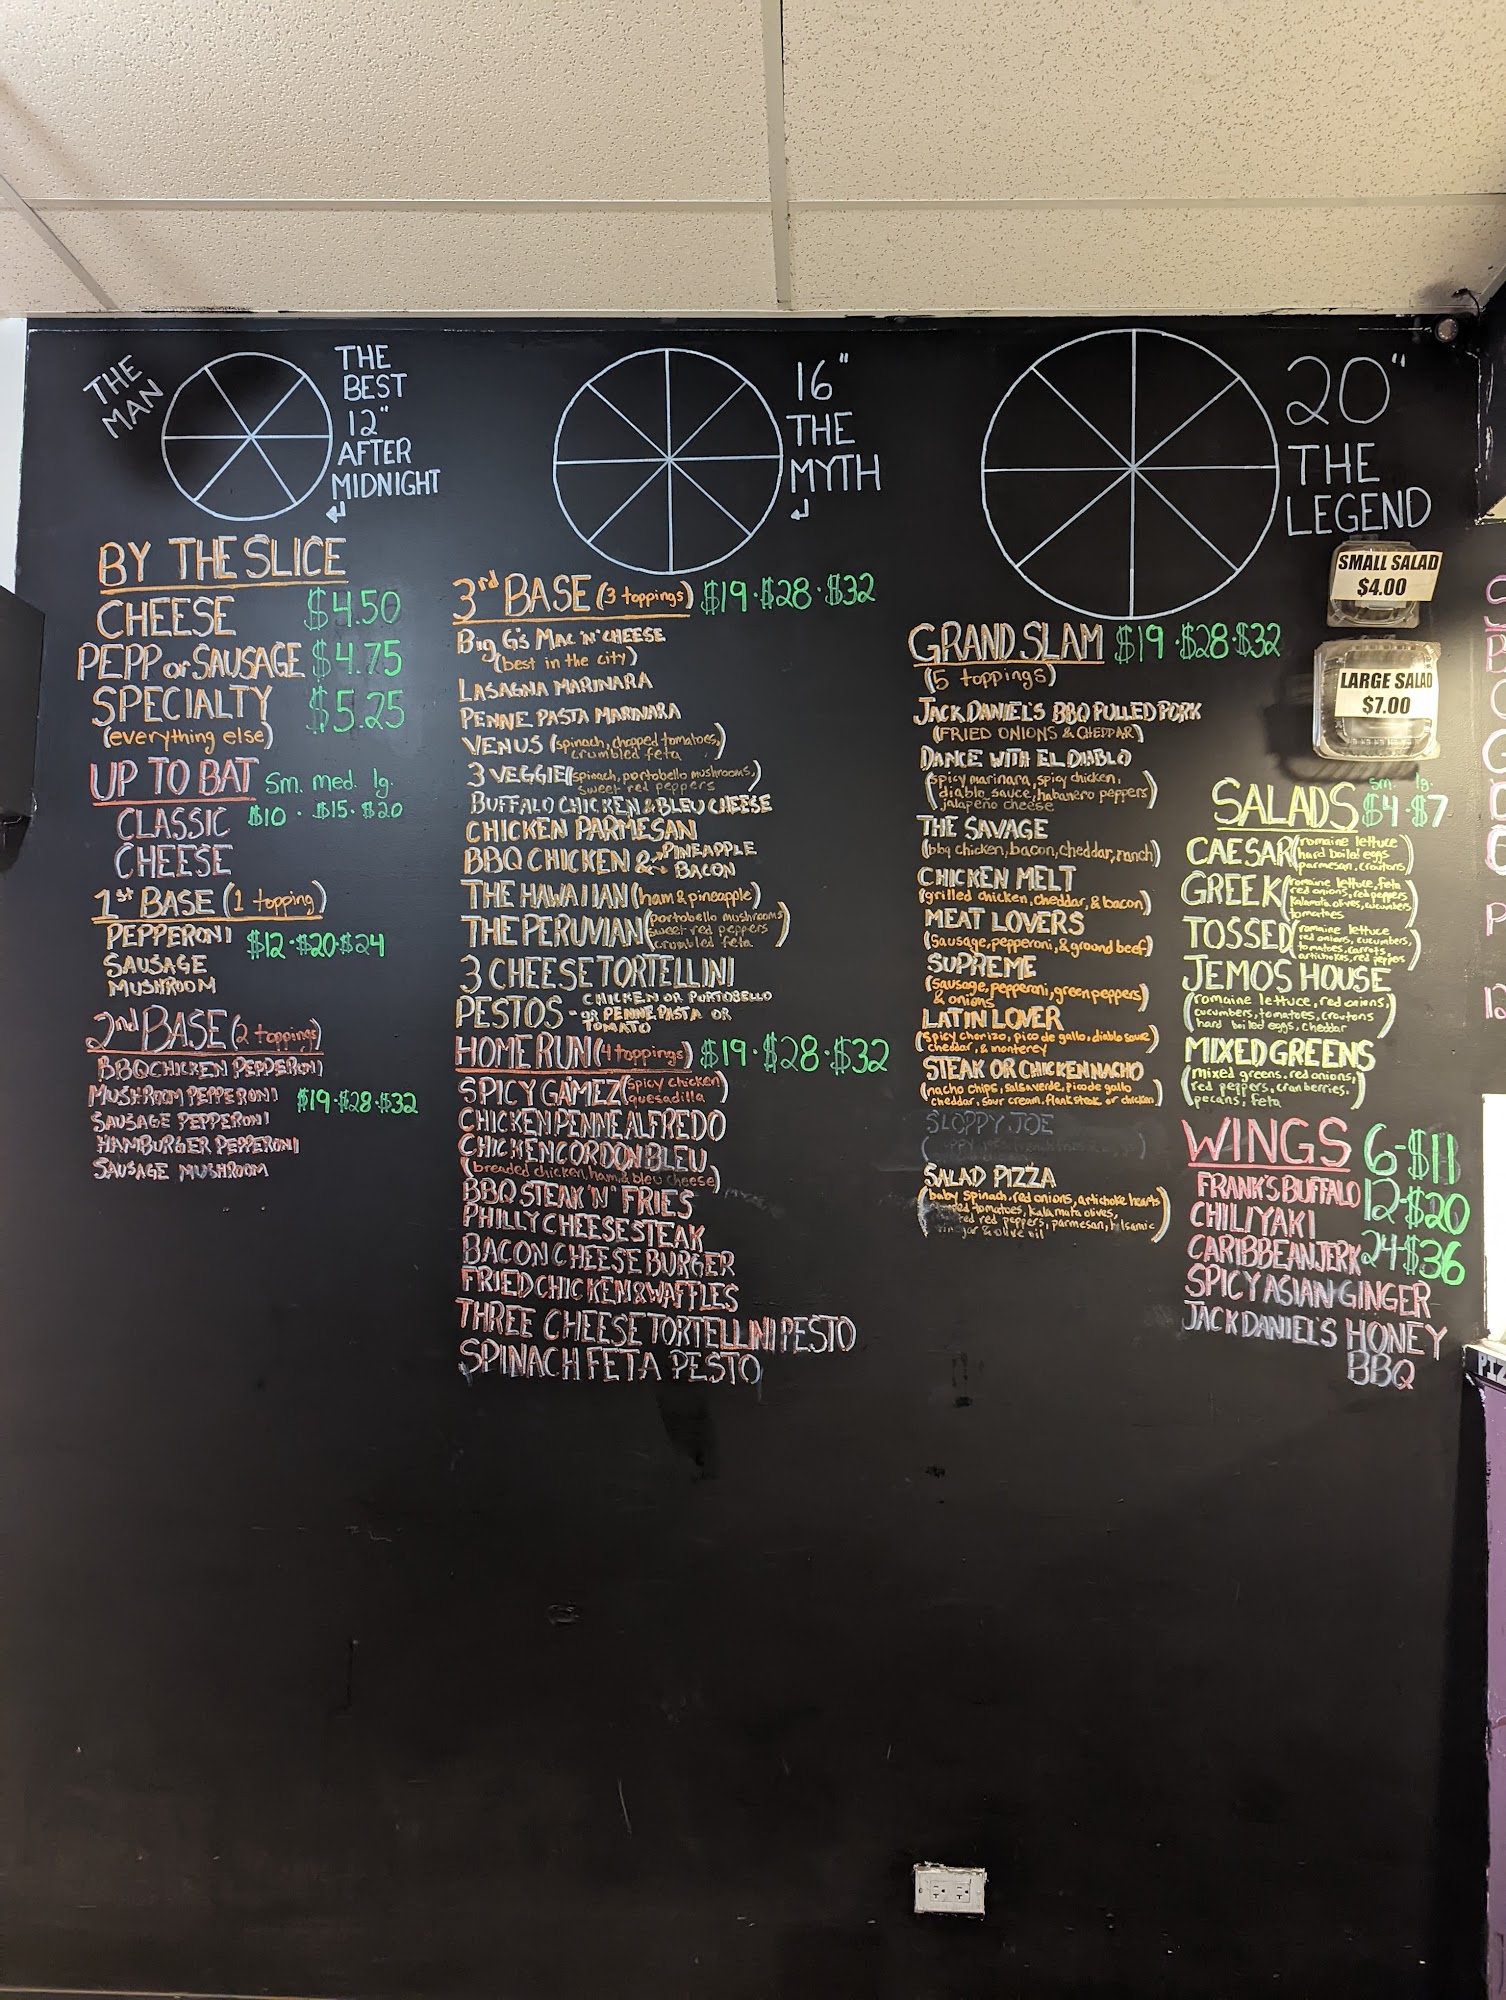 THE
MAN
THE
BEST
12"
AFTER
MIDNIGHT
16"
THE
MYTH
20"
THE
LEGEND
BY THE SLICE
CHEESE $4.50
PEPP or SAUSAGE $4.75
SPECIALTY $5.25
(everything else)
UP TO BAT Sm. med. lg.
CLASSIC $10 · $15 · $20
CHEESE
1st BASE (1 topping)
PEPPERONI $12 · $20 · $24
SAUSAGE
MUSHROOM
2nd BASE (2 toppings)
BBQ CHICKEN PEPPERONI
MUSHROOM PEPPERONI $19 · $28 · $32
SAUSAGE PEPPERONI
HAMBURGER PEPPERONI
SAUSAGE MUSHROOM
3rd BASE (3 toppings) $19 · $28 · $32
BIG G'S MAC 'N' CHEESE
(best in the city)
LASAGNA MARINARA
PENNE PASTA MARINARA
VENUS (spinach, chopped tomatoes,
crumbled feta)
3 VEGGIE (spinach, portobello mushrooms,
sweet red peppers)
BUFFALO CHICKEN & BLEU CHEESE
CHICKEN PARMESAN
BBQ CHICKEN & PINEAPPLE
BACON
THE HAWAIIAN (ham & pineapple)
THE PERUVIAN (portobello mushrooms
sweet red peppers
crumbled feta)
3 CHEESE TORTELLINI
PESTOS - CHICKEN OR PORTOBELLO
OR PENNE PASTA OR
TOMATO
HOME RUN (4 toppings) $19 · $28 · $32
SPICY GAMEZ (spicy chicken
quesadilla)
CHICKEN PENNE ALFREDO
CHICKEN CORDON BLEU
(breaded chicken, ham & bleu cheese)
BBQ STEAK 'N' FRIES
PHILLY CHEESE STEAK
BACON CHEESE BURGER
FRIED CHICKEN & WAFFLES
THREE CHEESE TORTELLINI PESTO
SPINACH FETA PESTO
GRAND SLAM $19 · $28 · $32
(5 toppings)
JACK DANIEL'S BBQ PULLED PORK
(FRIED ONIONS & CHEDDAR)
DANCE WITH EL DIABLO
(spicy marinara, spicy chicken,
diablo sauce, habanero peppers
jalapeño cheese)
THE SAVAGE
(bbq chicken, bacon, cheddar, ranch)
CHICKEN MELT
(grilled chicken, cheddar, & bacon)
MEAT LOVERS
(sausage, pepperoni, & ground beef)
SUPREME
(sausage, pepperoni, green peppers
& onions)
LATIN LOVER
(spicy chorizo, pico de gallo, diablo sauce
cheddar, & monterey)
STEAK OR CHICKEN NACHO
(nacho chips, salsa verde, pico de gallo
cheddar, sour cream, flank steak or chicken)
SLOPPY JOE
SALAD PIZZA
(baby spinach, red onions, artichoke hearts
tomatoes, kalamata olives,
red peppers, parmesan, balsamic
& olive oil)
SMALL SALAD
$4.00
LARGE SALAD
$7.00
sm. lg.
SALADS $4 · $7
CAESAR (romaine lettuce
hard boiled eggs
parmesan, croutons)
GREEK (romaine lettuce, feta
red onions, red peppers
kalamata olives, cucumbers
tomatoes)
TOSSED (romaine lettuce
red onions, cucumbers,
tomatoes, carrots
artichokes, red peppers)
JEMO'S HOUSE
(romaine lettuce, red onions,
cucumbers, tomatoes, croutons
hard boiled eggs, cheddar)
MIXED GREENS
(mixed greens, red onions,
red peppers, cranberries,
pecans, feta)
WINGS 6-$11
FRANK'S BUFFALO 12-$20
CHILIYAKI
CARIBBEAN JERK 24-$36
SPICY ASIAN GINGER
JACK DANIEL'S HONEY
BBQ
PIZ